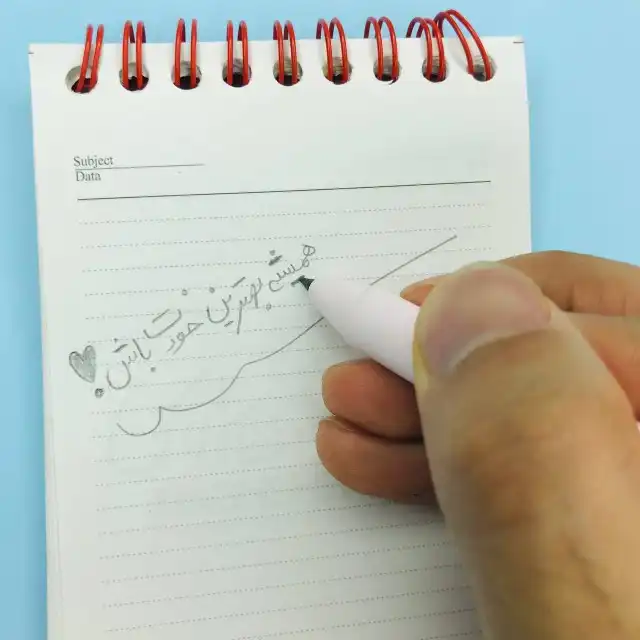 Subject
Data
همیشه بهترین خودت باش.